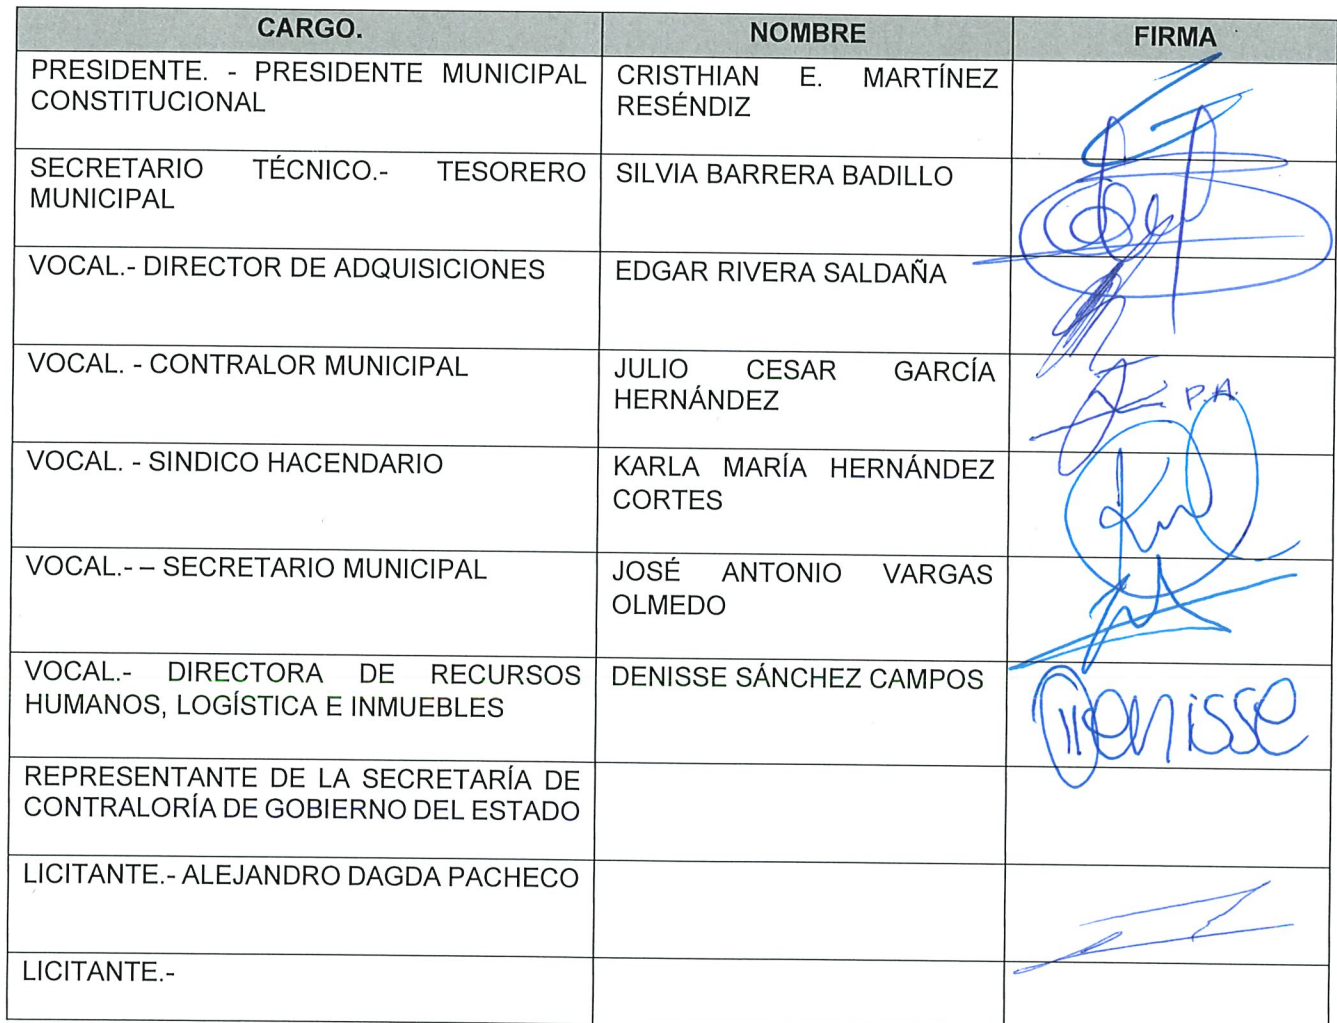 CARGO. NOMBRE FIRMA
PRESIDENTE. - PRESIDENTE MUNICIPAL CRISTHIAN E. MARTÍNEZ
CONSTITUCIONAL RESÉNDIZ
SECRETARIO TÉCNICO.- TESORERO SILVIA BARRERA BADILLO
MUNICIPAL
VOCAL.- DIRECTOR DE ADQUISICIONES EDGAR RIVERA SALDAÑA
VOCAL. - CONTRALOR MUNICIPAL JULIO CESAR GARCÍA
HERNÁNDEZ P.A.
VOCAL. - SINDICO HACENDARIO KARLA MARÍA HERNÁNDEZ
CORTES
VOCAL.- – SECRETARIO MUNICIPAL JOSÉ ANTONIO VARGAS
OLMEDO
VOCAL.- DIRECTORA DE RECURSOS DENISSE SÁNCHEZ CAMPOS
HUMANOS, LOGÍSTICA E INMUEBLES Denisse
REPRESENTANTE DE LA SECRETARÍA DE
CONTRALORÍA DE GOBIERNO DEL ESTADO
LICITANTE.- ALEJANDRO DAGDA PACHECO
LICITANTE.-